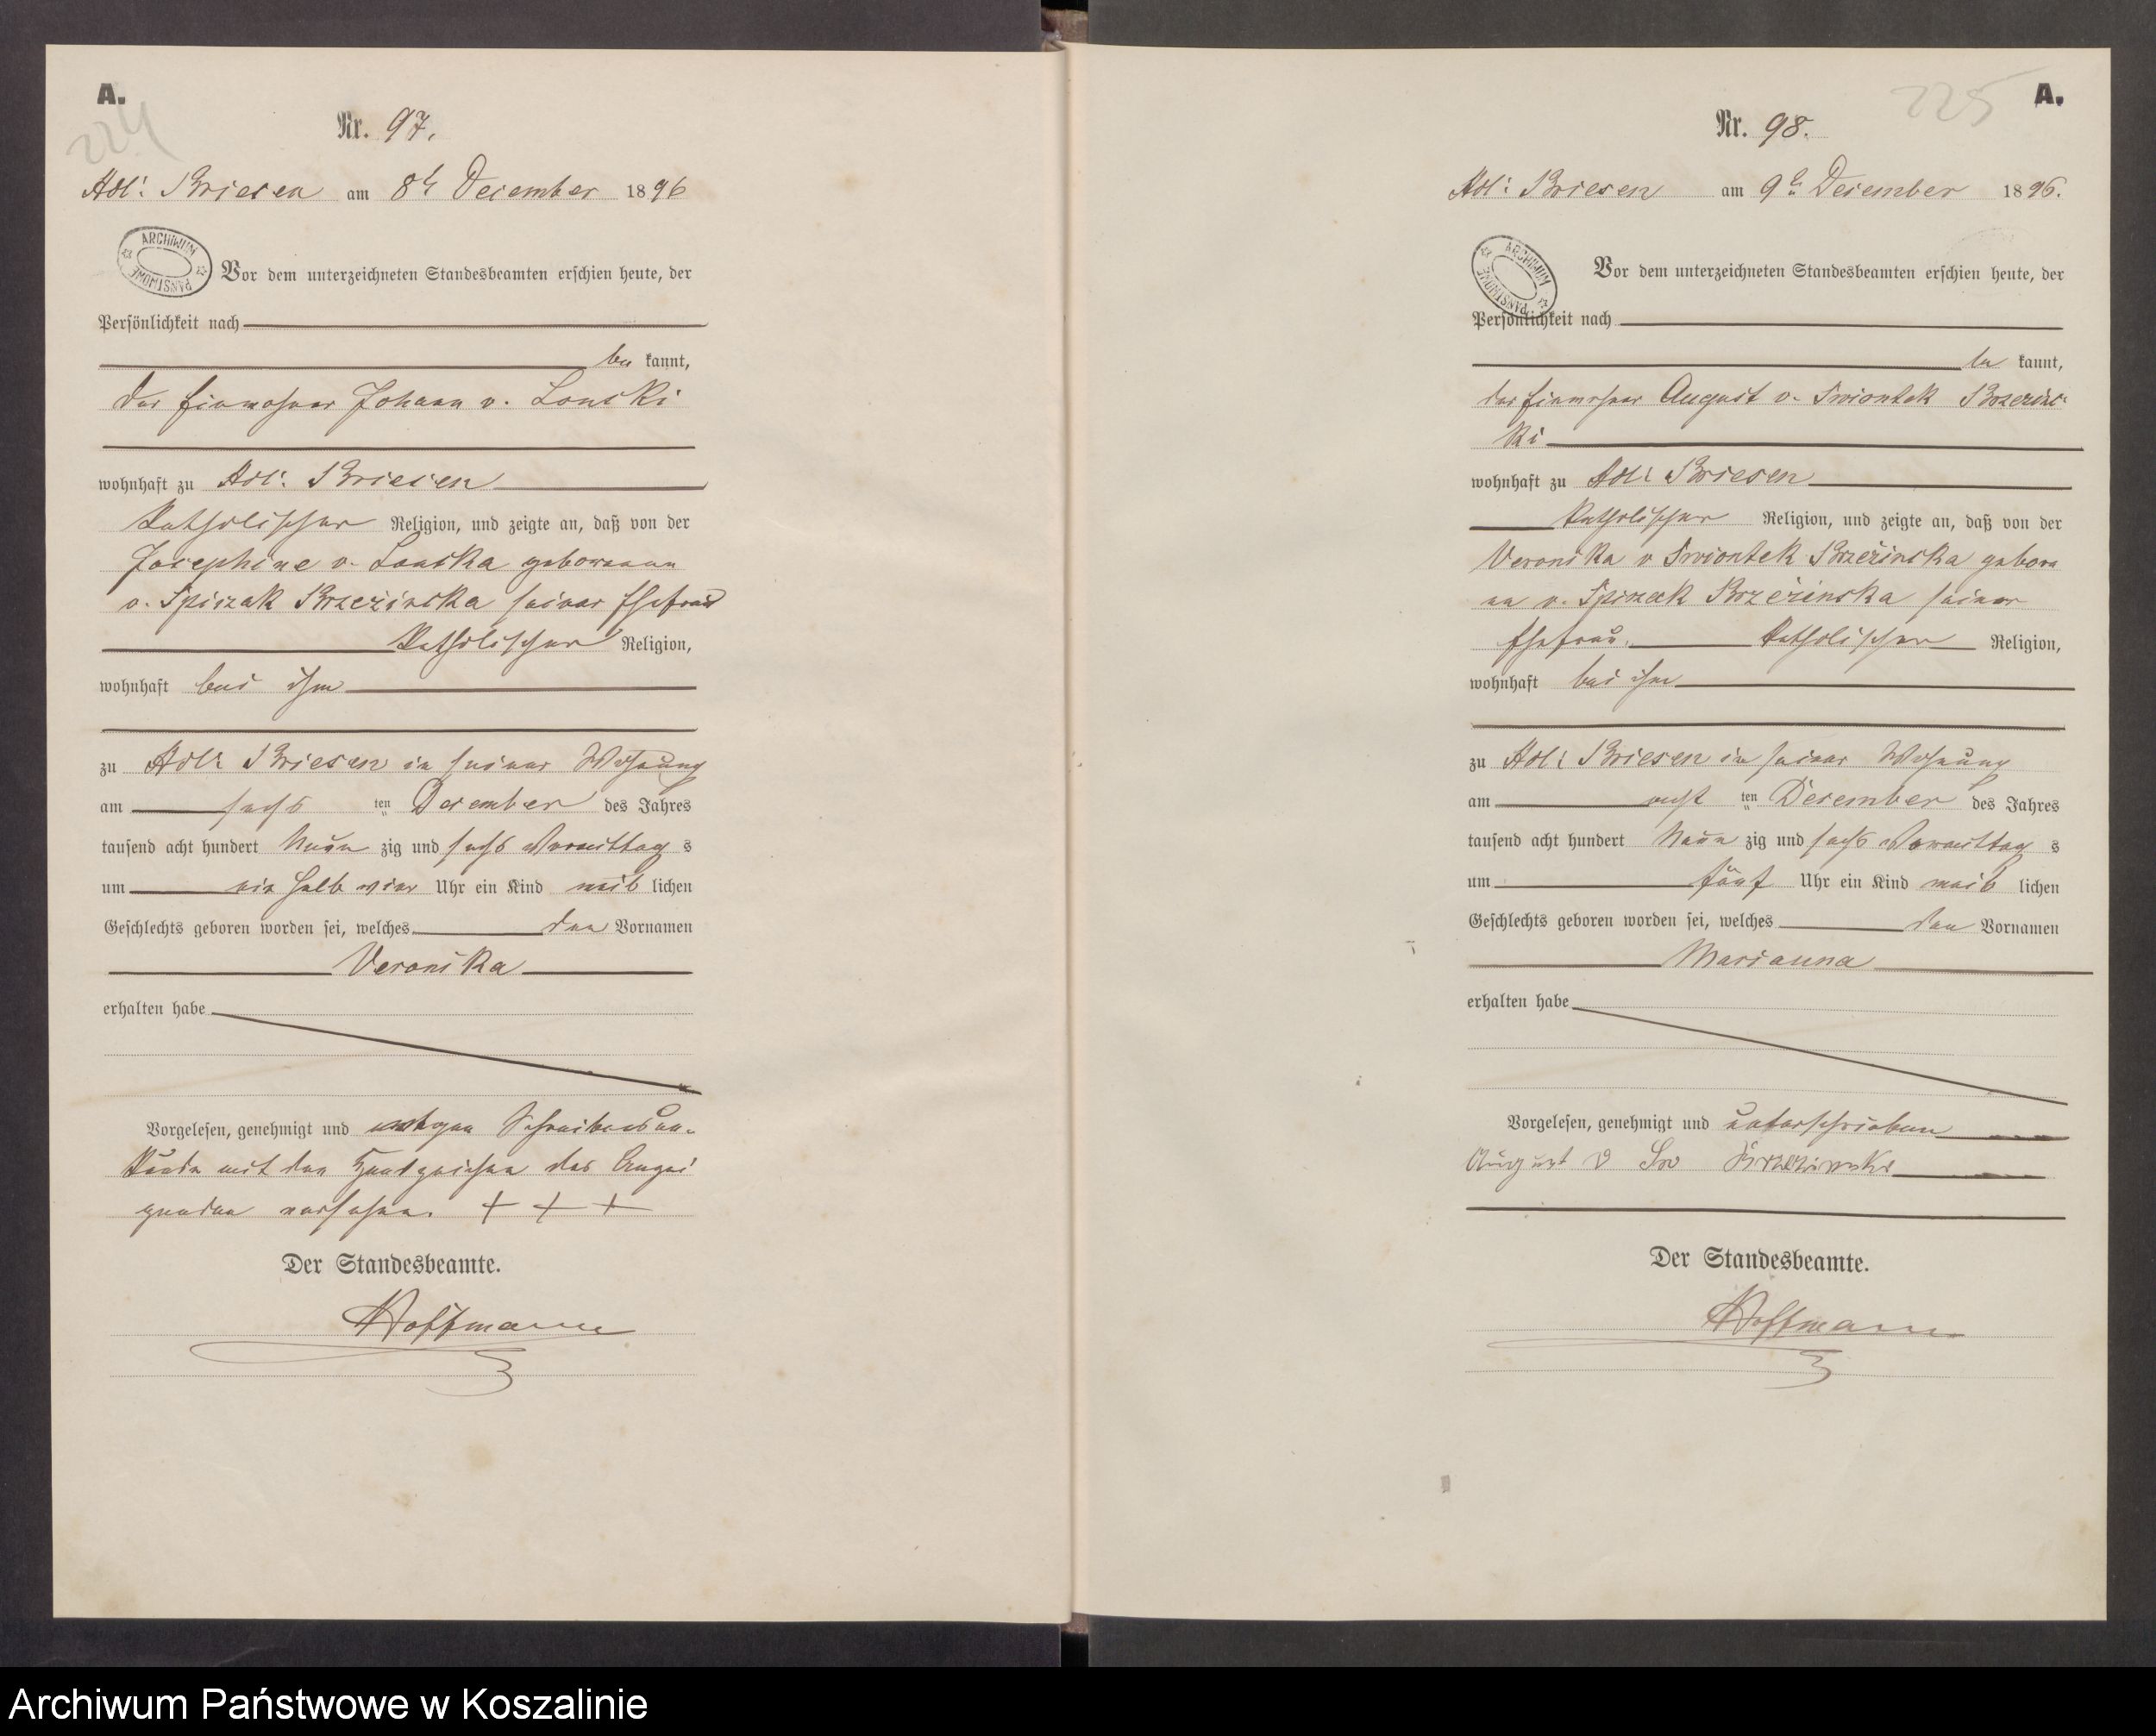 A.
224
Nr. 97.
Adl: Briesen am 8t December 1896
ARCHIWUM PAŃSTWOWE
Vor dem unterzeichneten Standesbeamten erschien heute, der
Persönlichkeit nach
be kannt,
der Einwohner Johann v. Lonski
wohnhaft zu Adl: Briesen
katholischer Religion, und zeigte an, daß von der
Josephine v. Lonska geborenen
v. Spiczak Brzezinska seiner Ehefrau
katholischer Religion,
wohnhaft bei ihm
zu Adl: Briesen in seiner Wohnung
am sechs ten December des Jahres
tausend acht hundert Neun zig und sechs Vormittag s
um ein halb vier Uhr ein Kind weib lichen
Geschlechts geboren worden sei, welches den Vornamen
Veronika
erhalten habe
Vorgelesen, genehmigt und wegen Schreibensun-
kunde mit den Handzeichen des Anzei
genden versehen. + + +
Der Standesbeamte.
Hoffmann
A.
225
Nr. 98.
Adl: Briesen am 9t December 1896.
ARCHIWUM PAŃSTWOWE
Vor dem unterzeichneten Standesbeamten erschien heute, der
Persönlichkeit nach
be kannt,
der Einwohner August v. Swiontek Brzezins-
ki
wohnhaft zu Adl: Briesen
katholischer Religion, und zeigte an, daß von der
Veronika v Swiontek Brzezinska gebore
nen v. Spiczak Brzezinska seiner
Ehefrau. katholischer Religion,
wohnhaft bei ihm
zu Adl: Briesen in seiner Wohnung
am acht ten December des Jahres
tausend acht hundert Neun zig und sechs Vormittag s
um fünf Uhr ein Kind weib lichen
Geschlechts geboren worden sei, welches den Vornamen
Marianna
erhalten habe
Vorgelesen, genehmigt und unterschrieben
August v Sw Brzezinski
Der Standesbeamte.
Hoffmann
Archiwum Państwowe w Koszalinie